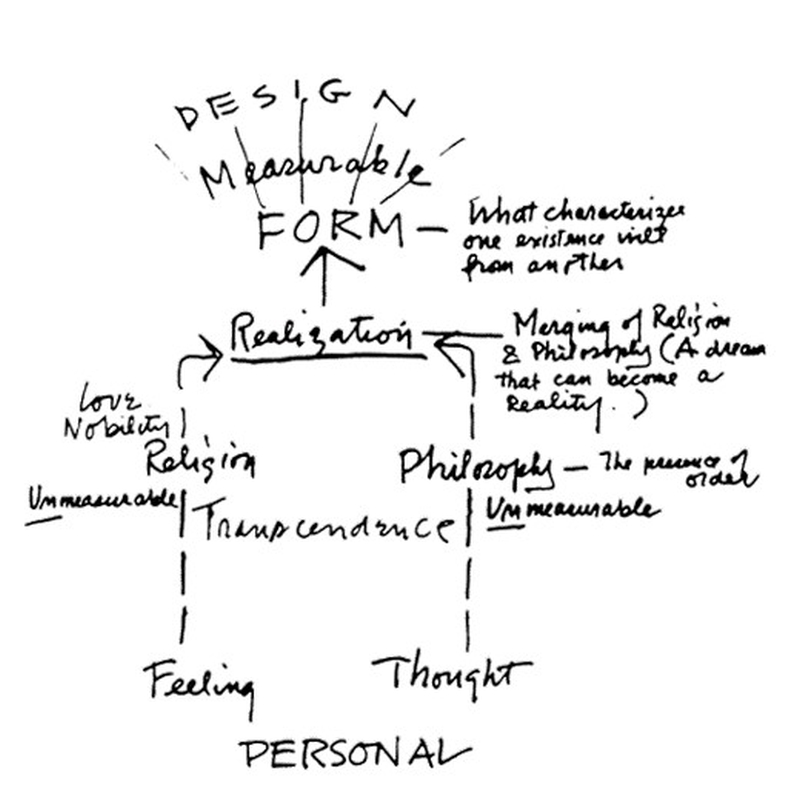 DESIGN
Measurable
FORM — What characterizes
one existence will
from another
Realization — Merging of Religion
& Philosophy (A dream
that can become a
Reality.)
Love
Nobility
Religion
Philosophy — The presence of
order
Unmeasurable
Transcendence
Unmeasurable
Feeling
Thought
PERSONAL